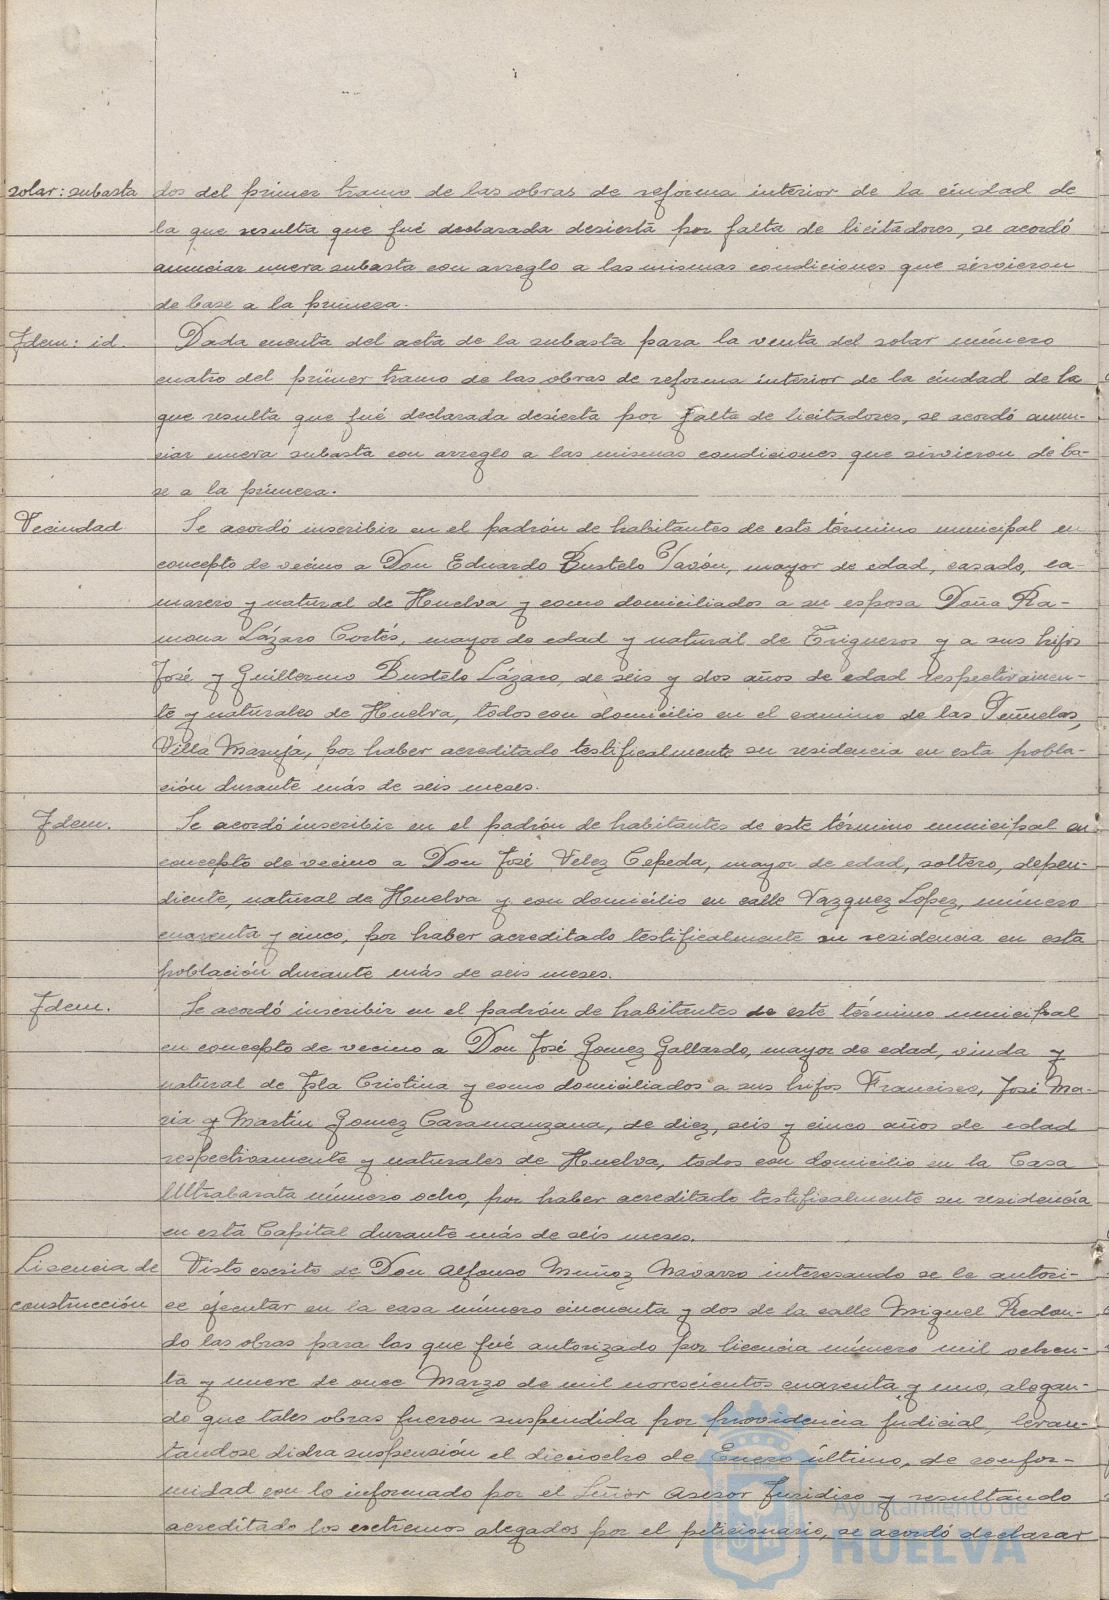 solar: subasta dos del primer tramo de las obras de reforma interior de la ciudad de
la que resulta que fué declarada desierta por falta de licitadores, se acordó
anunciar nueva subasta con arreglo a las mismas condiciones que sirvieron
de base a la primera.
Idem: id. Dada cuenta del acta de la subasta para la venta del solar número
cuatro del primer tramo de las obras de reforma interior de la ciudad de la
que resulta que fué declarada desierta por falta de licitadores, se acordó anun-
ciar nueva subasta con arreglo a las mismas condiciones que sirvieron de ba-
se a la primera.
Vecindad Se acordó inscribir en el padrón de habitantes de este término municipal en
concepto de vecino a Don Eduardo Bustelo Pavón, mayor de edad, casado, ca-
marero y natural de Huelva y como domiciliados a su esposa Doña Ra-
mona Lázaro Cortés, mayor de edad y natural de Trigueros y a sus hijos
José y Guillermo Bustelo Lázaro, de seis y dos años de edad respectivamen-
te y naturales de Huelva, todos con domicilio en el camino de las Peñuelas,
Villa Maruja, por haber acreditado testificalmente su residencia en esta pobla-
ción durante más de seis meses.
Idem. Se acordó inscribir en el padrón de habitantes de este término municipal en
concepto de vecino a Don José Velez Cepeda, mayor de edad, soltero, depen-
diente, natural de Huelva y con domicilio en calle Vazquez López, número
cuarenta y cinco, por haber acreditado testificalmente su residencia en esta
población durante más de seis meses.
Idem. Se acordó inscribir en el padrón de habitantes de este término municipal
en concepto de vecino a Don José Gomez Gallardo, mayor de edad, viudo y
natural de Isla Cristina y como domiciliados a sus hijos Francisco, José Ma-
ria y Martín Gomez Caramanzana, de diez, seis y cinco años de edad
respectivamente y naturales de Huelva, todos con domicilio en la Casa
Ultrabarata número ocho, por haber acreditado testificalmente su residencia
en esta Capital durante más de seis meses.
Lisencia de Visto escrito de Don Alfonso Muñoz Navarro interesando se le autori-
construcción ce ejecutar en la casa número cincuenta y dos de la calle Miguel Redon-
do las obras para las que fué autorizado por licencia número mil ochen-
ta y nueve de once Marzo de mil novescientos cuarenta y uno, alegan-
do que tales obras fueron suspendida por providencia judicial, levan-
tándose dicha suspensión el dieciocho de Enero último, de confor-
midad con lo informado por el Señor Asesor Jurídico y resultando
acreditado los extremos alegados por el peticionario, se acordó declarar
Ayuntamiento de
HUELVA